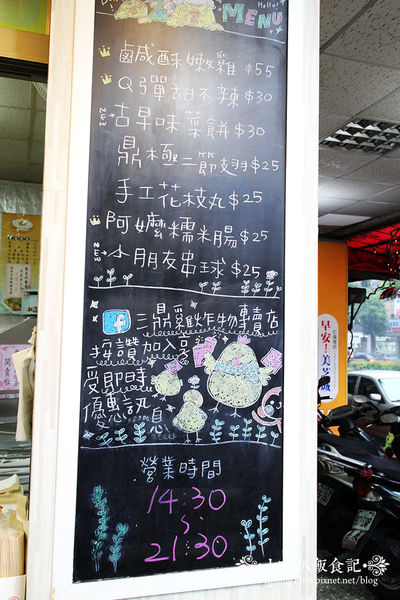 Hello!
MENU
鹹酥嫩雞$55
Q彈甜不辣$30
古早味菜餅$30
鼎極二節翅$25
手工花枝丸$25
阿嬤糯米腸$25
NEW
小朋友串球$25
三鼎雞炸物專賣店
按讚加入享
受即時
優惠訊息
營業時間
14:30
~
21:30
早安!美芝城
飯食記